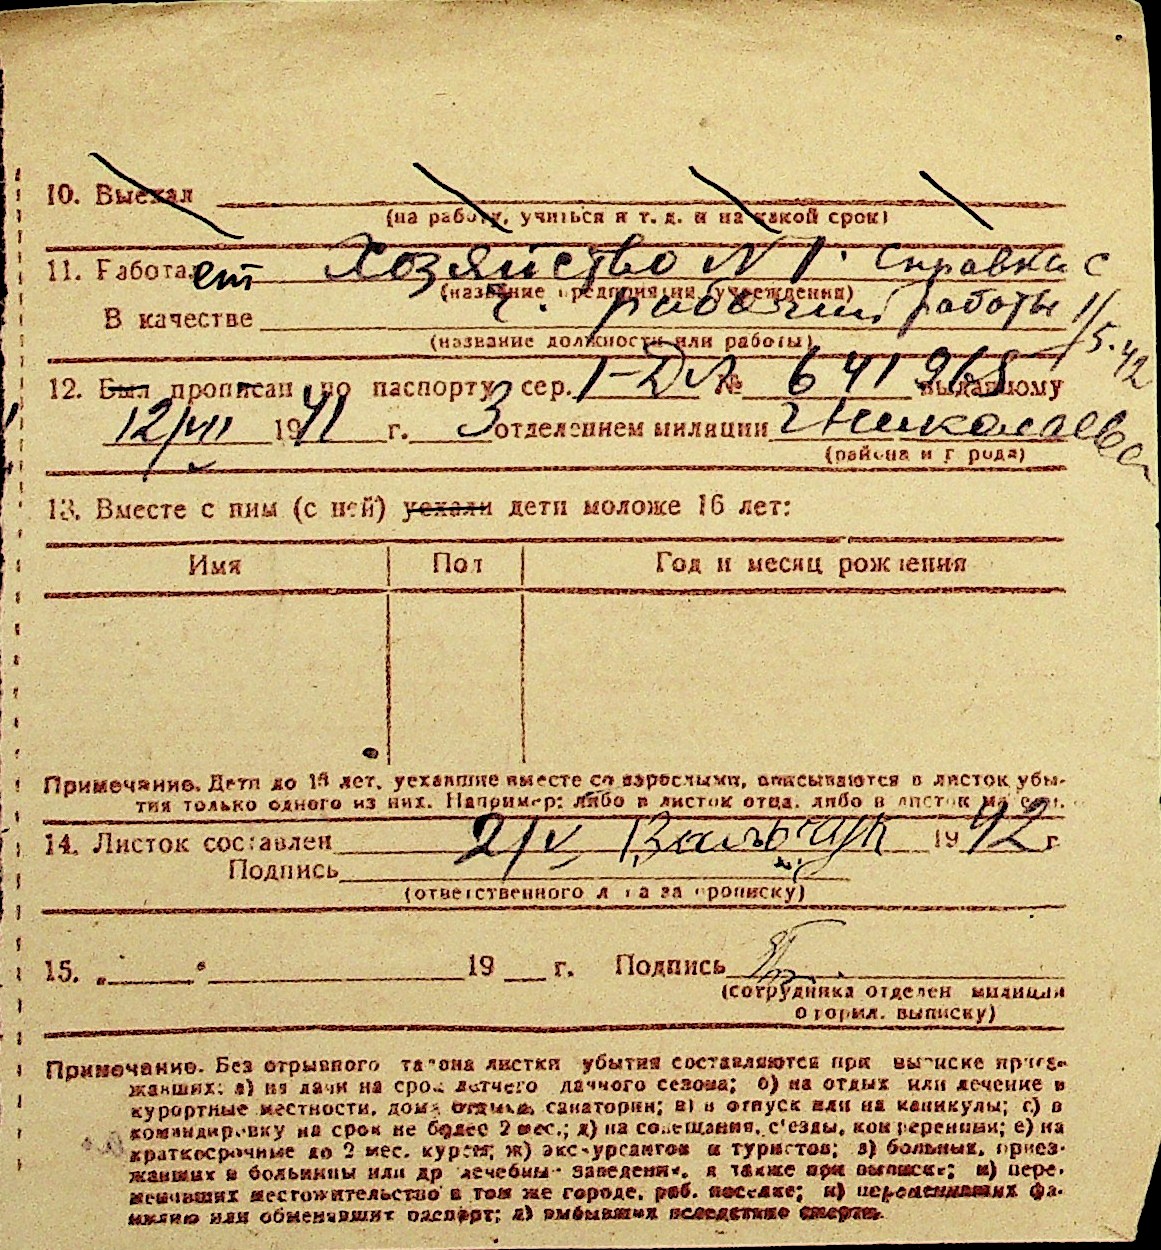 10. Выехал
(на работу, учиться и т. д. и на какой срок)
11. Работает Хозяйство N 1. Справка с
(название предприятия, учреждения)
В качестве ч. рабочий работы 1/5.42
(название должности или работы)
12. Был прописан по паспорту сер. I-ДЛ № 641968 выданному
12/VII 1941 г. 3 отделением милиции г Николаева
(района и города)
13. Вместе с ним (с ней) уехали дети моложе 16 лет:
Имя Пол Год и месяц рождения
Примечание. Дети до 16 лет, уехавшие вместе со взрослыми, вписываются в листок убы-
тия только одного из них. Например: либо в листок отца, либо в листок матери.
14. Листок составлен 2/V 1942 г
Подпись
(ответственного лица за прописку)
15. „ " 19 г. Подпись
(сотрудника отделен милиции
оформл. выписку)
Примечание. Без отрывного талона листки убытия составляются при выписке приез-
жавших: а) на дачи на срок летнего дачного сезона; б) на отдых или лечение в
курортные местности, дома отдыха, санатории; в) в отпуск или на каникулы; г) в
командировку на срок не более 2 мес.; д) на совещания, с'езды, конференции; е) на
краткосрочные до 2 мес. курсы; ж) экскурсантов и туристов; з) больных, приез-
жавших в больницы или др лечебные заведения, а также при выписке; и) пере-
менивших местожительство в том же городе, раб. поселке; к) переменивших фа-
милию или обменявших паспорт; л) выбывших вследствие смерти.